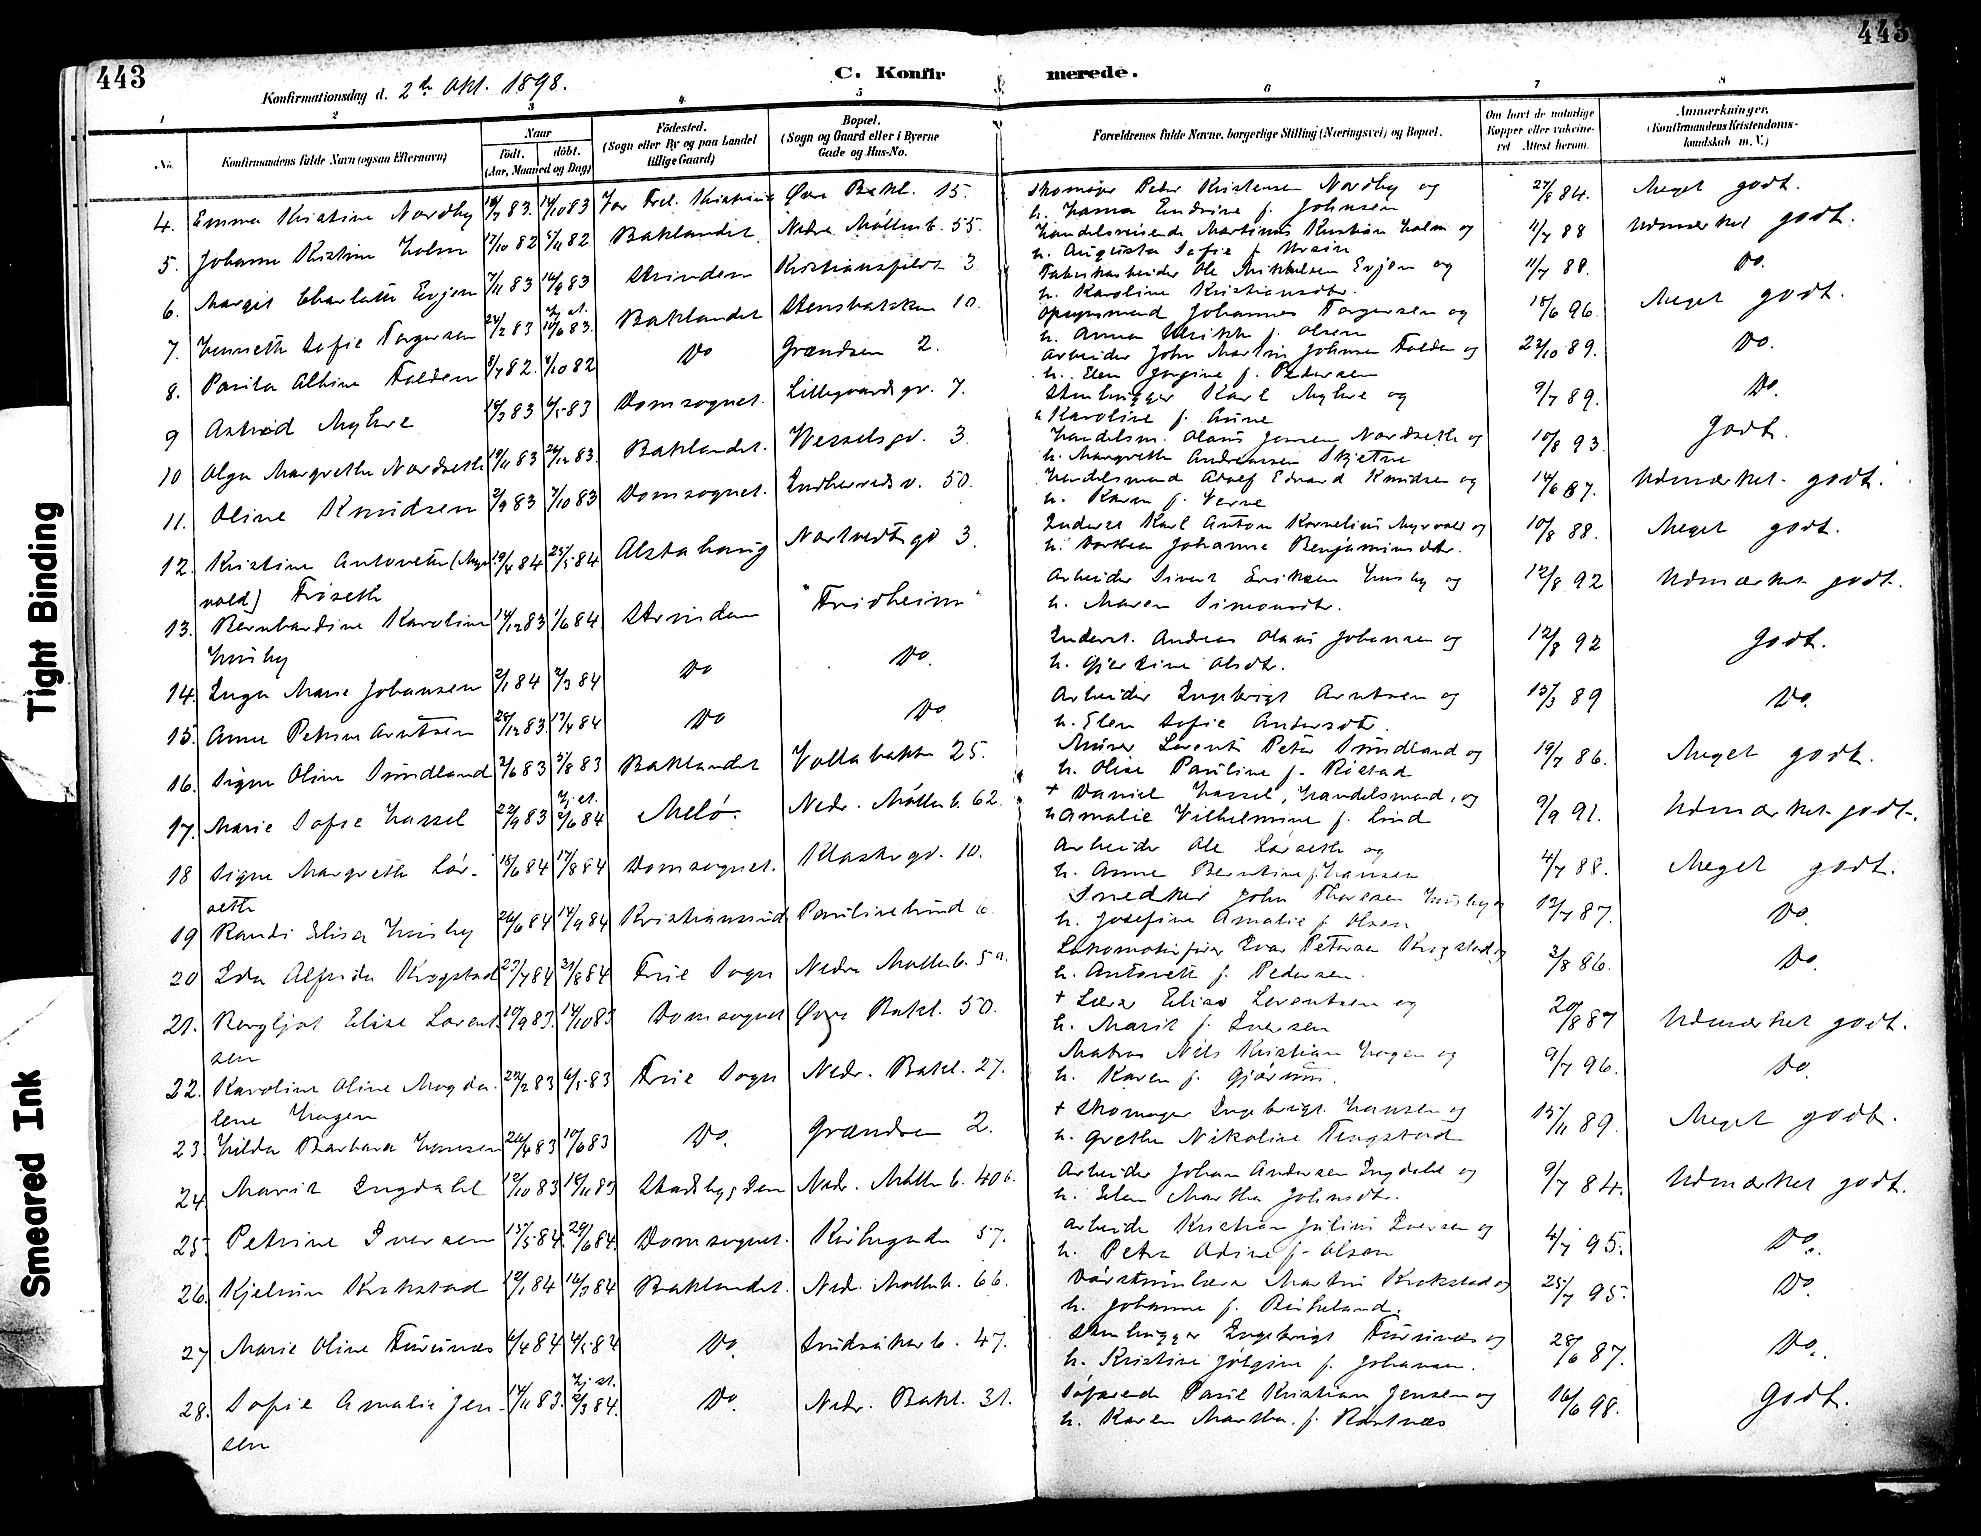 443
443
C. Konfirmerede.
Konfirmationsdag d. 2den Okt. 1898.
1 2 3 4 5 6 7 8
No.
Konfirmandens fulde Navn (ogsaa Efternavn)
Naar
födt. döbt.
(Aar, Maaned og Dag)
Födested.
(Sogn eller By og paa Landet
tillige Gaard)
Bopæl.
(Sogn og Gaard eller i Byerne
Gade og Hus-No.
Forældrenes fulde Navne, borgerlige Stilling (Næringsvei) og Bopæl.
Om havt de naturlige
Kopper eller vaccine-
ret Attest herom.
Anmærkninger.
(Konfirmandens Kristendoms-
kundskab m. V.)
4. Emma Kristine Nordby 83. 14/10 83 Øvre Bakl. 15. Skomager Peter Kristensen Nordby og 27/8 84. Meget godt.
h. Hanna Endrine f. Johnsen
5. Johanne Kristine Holm 17/10 82 5/11 82 Baklandet. Nedre Møllenb. 55. Handelsreisende Martinus Kristian Holm og 11/7 88 Udmærket godt.
h. Augusta Sofie f. Ursin
6. Margit Charlotte Evjen 83 83 Strinden Kristiansfeldt 3 Fabrikarbeider Ole Mikkelsen Evjen og 11/7 88. Do.
h. Karoline Kristiansdtr.
7. Henriette Sofie Torgersen 24/2 83 Hj. st. 10/6 83. Baklandet Stensbakken 10. Opsynsmand Johannes Torgersen og 18/6 96. Meget godt.
h. Anna Ulrikke f. Olsen
8. Paula Albine Folden 8/7 82. 8/10 82 Do Grændsen 2. Arbeider John Martin Johnsen Folden og 22/10 89. Do.
h. Elen Jørgine f. Pedersen
9 Astrid Myhre 83 6/5 83 Domsognet. Lillegaardsgr. 7. Stenhugger Karl Myhre og 9/7 89. Do.
h Karoline f. Aune
10 Olga Margrethe Nordseth 19/11 83 26/12 83. Baklandet. Wesselsgd. 3. Handelsm. Olaus Jensen Nordseth og 10/8 93. Godt.
h. Margrethe Andreassen Skjetne
11. Oline Knudsen 2/9 83 7/10 83 Domsognet. Indherredsv. 50. Handelsmand Adolf Edvard Knudsen og 14/6 87. Udmærket godt.
h. Karen f. Verne
12. Kristine Antonette (Myr- 19/4 84 25/5 84 Alstahaug Nordtvedts gd 3. Inderst Karl Anton Kornelius Myrvold og 10/8 88. Meget godt.
vold) Frøseth h. Dorthea Johanna Benjaminsdtr.
13. Bernhardine Karoline 14/12 83 1/6 84 Strinden "Fridheim" Arbeider Sivert Eriksen Husby og 12/8 92 Udmærket godt.
Husby h. Maren Simonsdtr.
14. Inga Marie Johansen 2/1 84 2/3 84 Do Do. Inderst. Andreas Olaus Johansen og 12/8 92 Godt.
h. Gjertine Olsdtr.
15. Anna Petrine Arntsen 28/12 83. 17/4 84 Do Do. Arbeider Ingebrigt Arntsen og 13/3 89 Do.
h. Elen Sofie Andersdtr.
16. Signe Oline Sundland 2/6 83 5/8 83 Baklandet Vollabakken 25. Murer Lorents Peter Sundland og 19/7 86. Meget godt.
h. Olise Pauline f. Røstad
17. Marie Sofie Hassel 22/9 83 Hj. st. 2/6 84 Melø. Nedr. Møllenb. 62. + Daniel Hassel, Handelsmand, og 9/9 91. Udmærket godt.
h Amalie Vilhelmine f. Lind
18 Signe Margrethe Lør- 15/6 84 17/8 84 Domsognet. Klostergd. 10. Arbeider Ole Lørseth og 4/7 88. Meget godt.
seth h. Anne Berntine f. Hansen
19 Randi Elisa Husby 26/6 84 14/9 84 Kristiansund Paulinelund 6. Snedker John Thoresen Husby og 12/7 87. Do.
h. Josefine Amalie f. Olsen
20 Ida Alfrida Krogstad 23/7 84 31/8 84 Frue Sogn Nedre Møllenb. 5 a. Lokomotivfører Ivar Petersen Krogstad og 3/8 86. Do.
h. Antonette f. Pedersen.
21. Bergljot Elise Lorent- 10/9 83. 14/10 83 Domsognet Øvre Bakl. 50. + Lærer Elias Lorentsen og 20/8 87 Udmærket godt.
sen h. Marit f. Iversen
22. Karoline Oline Magda- 22/2 83 6/5 83 Frue Sogn Nedr. Bakl. 27. Matros Nils Kristian Hagen og 9/7 96. Do.
lene Hagen h. Karen f. Gjørum.
23. Hilda Barbara Hansen 26/4 83 10/6 83 Do. Grændsen 2. + Skomager Ingebrigt Hansen og 15/11 89. Meget godt.
h. Grethe Nikoline Tingstad
24. Marit Ingdahl 12/10 83 18/11 83 Stadsbygden Nedr. Møllenb. 40 b. Arbeider Johan Andersen Ingdahl og 9/7 84. Udmærket godt.
h. Elen Martha Johnsdtr.
25. Petrine Iversen 15/5 84. 29/6 84. Domsognet. Kirkegaden 57. Arbeider Kristian Julius Iversen og 4/7 95. Do.
h. Petra Odine f. Olsen
26. Kjelrun Krokstad 12/1 84 16/3 84 Baklandet. Nedr. Møllenb. 66. Martin Krokstad og 25/7 95. Do.
h. Johanne f. Birkeland.
27 Marie Oline Furunæs 6/4 84 4/5 84 Do. b. 47. Stenhugger Ingebrigt Furunæs og 28/6 87. Do.
h. Kristine Jørgine f. Johansen.
28. Sofie Amalie Jen- 14/11 83. Hj. st. 2/3 84. Do. Nedr. Bakl. 31. Søfarende Paul Kristian Jensen og 16/6 98. Godt.
sen h. Karen Martha f. Rostnæs
Tight Binding
Smeared Ink